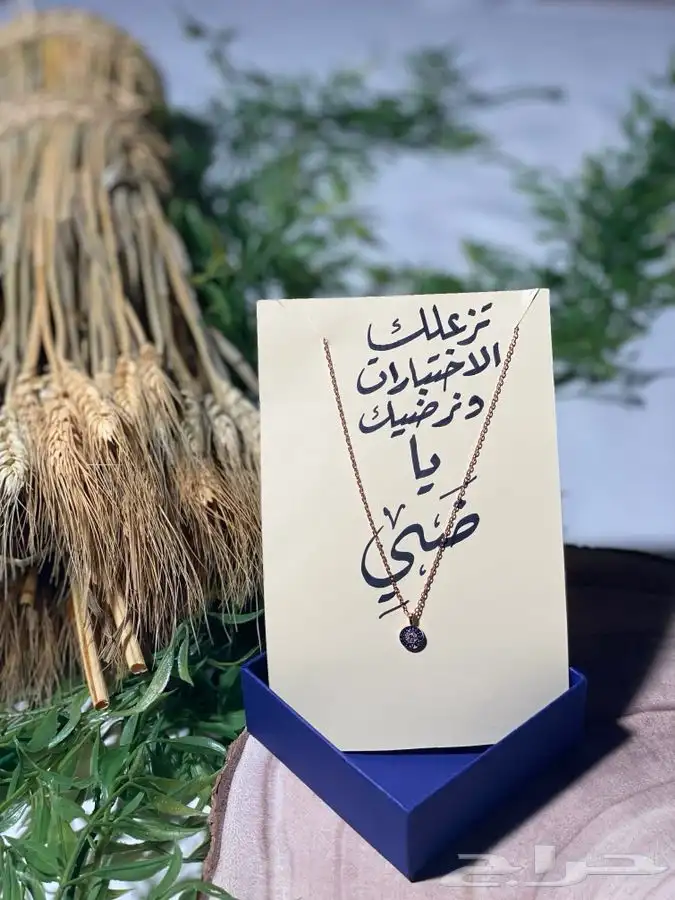 تزعلك
الاختبارات
ونرضيك
يا
ضحي
حراج